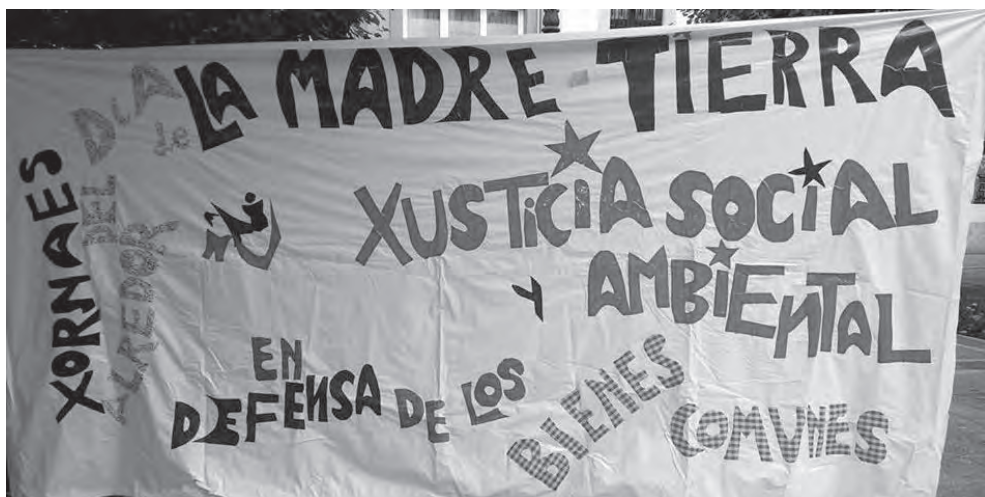 XORNAES
ALREDOR
DEL DIA
de
LA MADRE TIERRA
XUSTICIA SOCIAL
Y AMBIENTAL
EN
DEFENSA DE LOS
BIENES
COMUNES